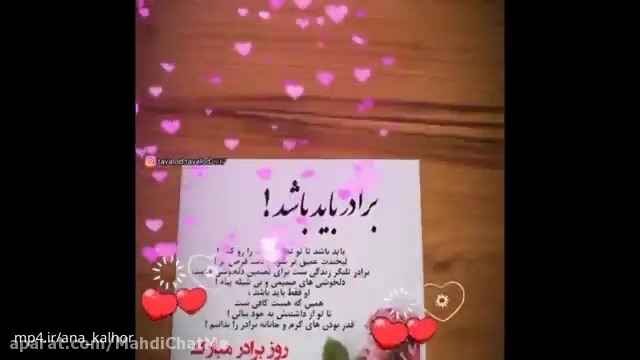 tavalod.tavalod
برادر باید باشد!
باید باشد تا تو را رو ک
لبخندت عمیق تر شو
برادر تلنگر زندگی ست برای تضمین دلخوشی
دلخوشی های صمیمی و بی شیله پیله !
او فقط باید باشد ،
همین که هست کافی ست
تا تو از داشتنش به خود ببالی !
قدر بودن های گرم و جانانه برادر را بدانیم !
روز برادر مبارک
mp4.ir/ana_kalhor
aparat.com/MahdiChatMe